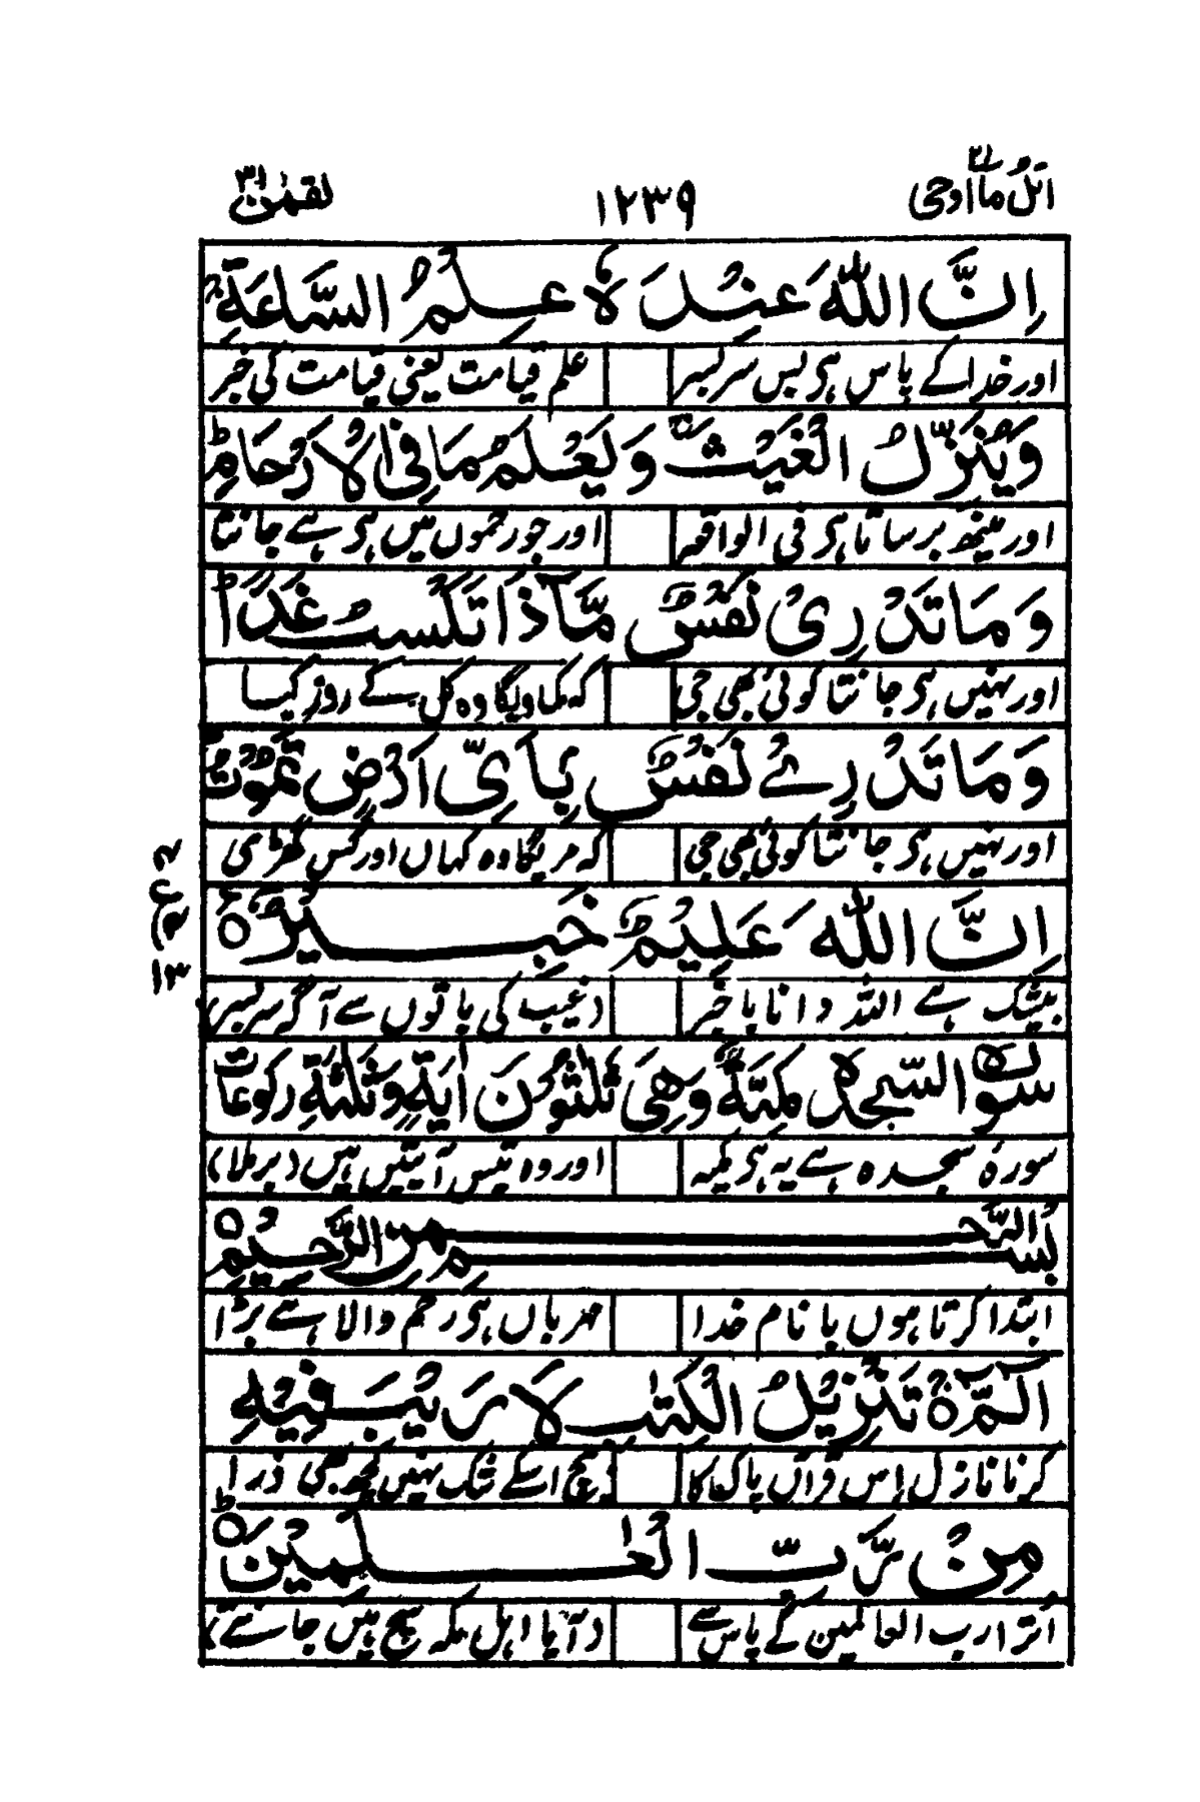 اتل ما اوحی ۲۱ ۱۲۳۹ لقمٰن ۳۱
اِنَّ اللّٰهَ عِنْدَهٗ عِلْمُ السَّاعَةِ ۚ
اور خدا کے پاس ہی بس سربسر علم قیامت یعنی قیامت کی خبر
وَیُنَزِّلُ الْغَیْثَ ۚ وَیَعْلَمُ مَا فِی الْاَرْحَامِ ؕ
اور مینھ برساتا ہی فی الواقعہ اور جو رحموں میں ہی ہے جانتا
وَمَا تَدْرِیْ نَفْسٌ مَّاذَا تَكْسِبُ غَدًا ؕ
اور نہیں ہی جانتا کوئی بھی جی کہ کماویگا وہ کل کے روز کیسا
وَمَا تَدْرِیْ نَفْسٌۢ بِاَیِّ اَرْضٍ تَمُوْتُ ؕ
اور نہیں ہی جانتا کوئی بھی جی کہ مریگا وہ کہاں اور کس گھڑی
اِنَّ اللّٰهَ عَلِیْمٌ خَبِیْرٌ ۠
بیشک ہے اللہ دانا باخبر (غیب کی باتوں سے آگہ سربسر)
ع
۱۳
سورة السجدة مكية وهي ثلثون اٰية وثلثة ركوعات
سورۂ سجدہ ہے یہ ہی مکیہ اور وہ تیس آیتیں ہیں (برملا)
بِسْمِ الرَّحْمٰنِ الرَّحِیْمِ
ابتدا کرتا ہوں با نام خدا مہرباں ہی رحم والا ہے بڑا
الٓمّٓ ۚ تَنْزِیْلُ الْكِتٰبِ لَا رَیْبَ فِیْهِ
کرنا نازل اِس قرآں پاک کا بیچ اسکے شک نہیں کچھ بھی ذرا
مِنْ رَّبِّ الْعٰلَمِیْنَ ؕ
اُترا رب العالمین کے پاس سے (آیا اہل مکہ سچ ہیں جانتے)